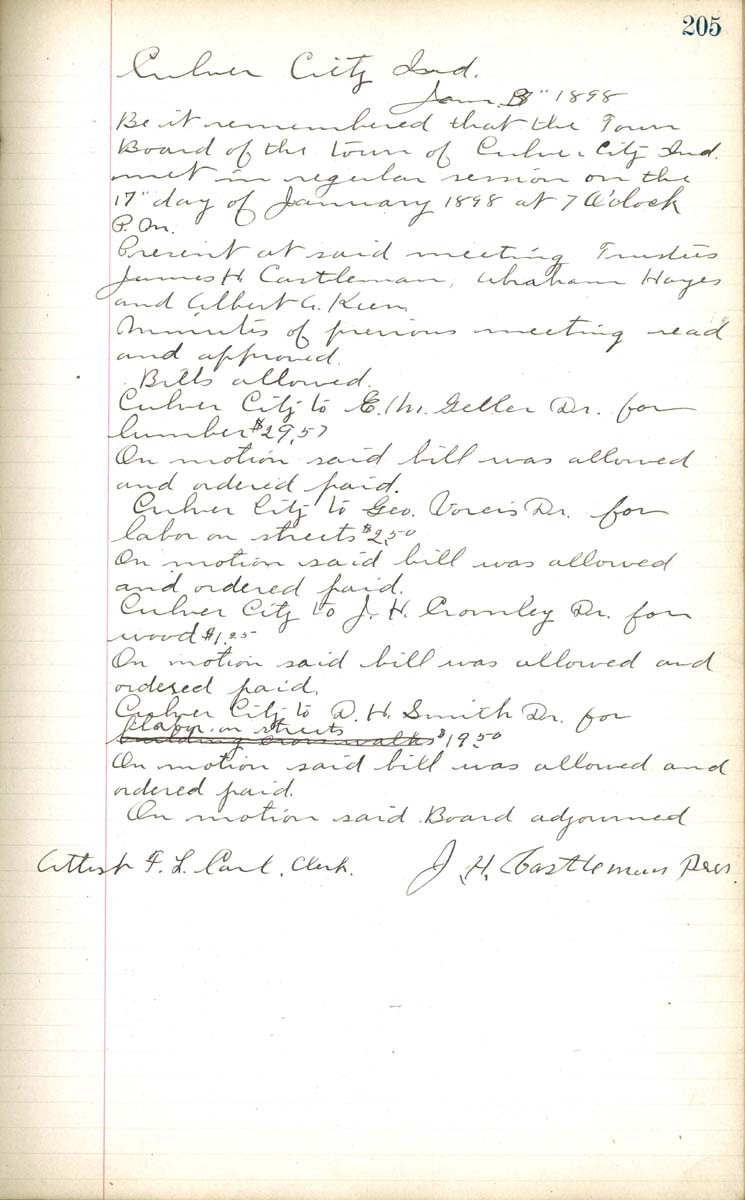 205
Culver City Ind.
Jan. 1898
Be it remembered that the Town
Board of the town of Culver City Ind.
met in regular session on the
17" day of January 1898 at 7 O'clock
P.M.
Present at said meeting Trustees
James H. Castleman, Abraham Hayes
and Albert A. Keen.
Minutes of previous meeting read
and approved.
Bills allowed.
Culver City to E. M. Geller Dr. for
lumber $29.57
On motion said bill was allowed
and ordered paid.
Culver City to Geo. Voreis Dr. for
labor on streets $2.50
On motion said bill was allowed
and ordered paid.
Culver City to J. H. Cromley Dr. for
wood $1.25
On motion said bill was allowed and
ordered paid.
Culver City to D. H. Smith Dr. for
labor on streets
building crosswalks $19.50
On motion said bill was allowed and
ordered paid.
On motion said Board adjourned
Attest F. L. Carl, Clerk. J. H. Castleman Pres.